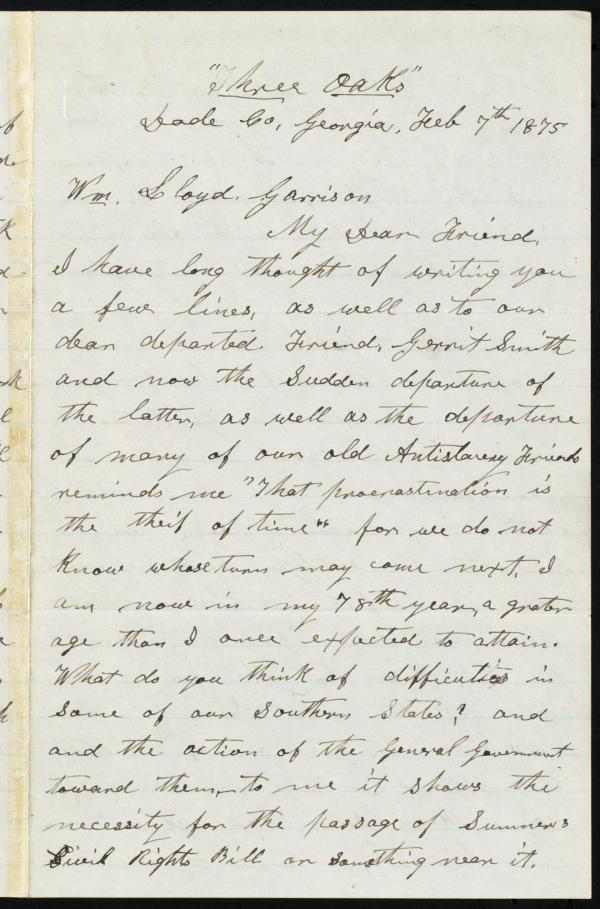 "Three Oaks"
Dade Co, Georgia, Feb 7th 1875
Wm. Lloyd. Garrison
My Dear Friend,
I have long thought of writing you
a few lines, as well as to our
dear departed Friend, Gerrit Smith
and now the Sudden departure of
the latter, as well as the departure
of many of our old Antislavery Friends
reminds me "That procrastination is
the theif of time" for we do not
Know whose turn may come next. I
am now in my 78th year, a grater
age than I once expected to attain.
What do you think of difficulties in
Some of our Southern States? and
and the action of the General Government
toward them, - to me it shows the
necessity for the passage of Sumners
Civil Rights Bill or Something near it.